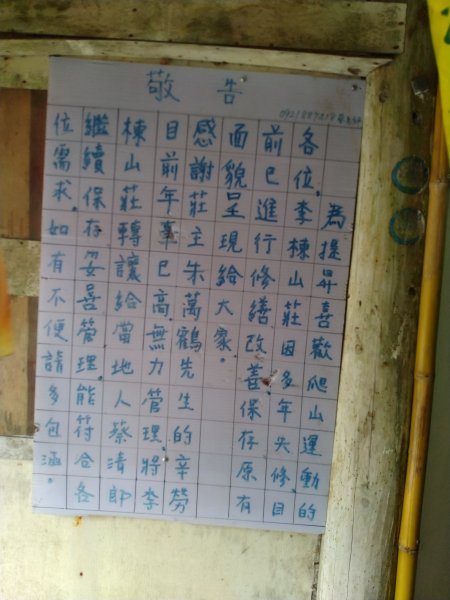 敬告
為提昇喜歡爬山運動的
各位,李棟山莊因多年失修,目
前已進行修繕改善保存原有
面貌呈現給大家。
感謝莊主朱萬鶴先生的辛勞
目前年事已高,無力管理將李
棟山莊轉讓給當地人蔡清郎
繼續保存妥善管理,能符合各
位需求。如有不便請多包涵。